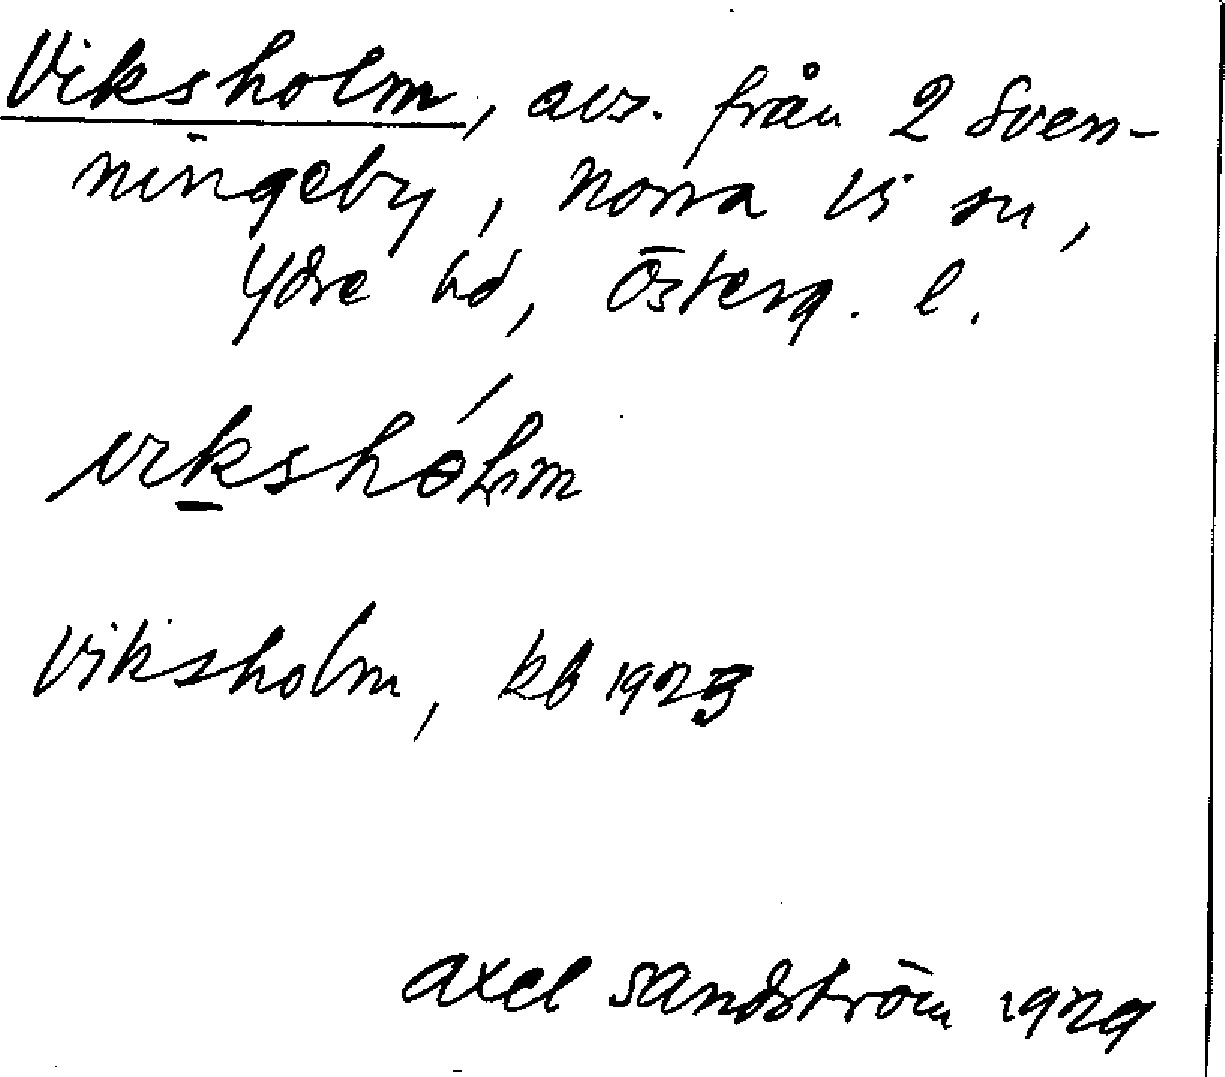 Viksholm, avs. från 2 Sven-
ningeby, Norra Vi sn,
Ydre hd, Österg. l.
Viksholm, kb 1923
Axel Sandström 1929